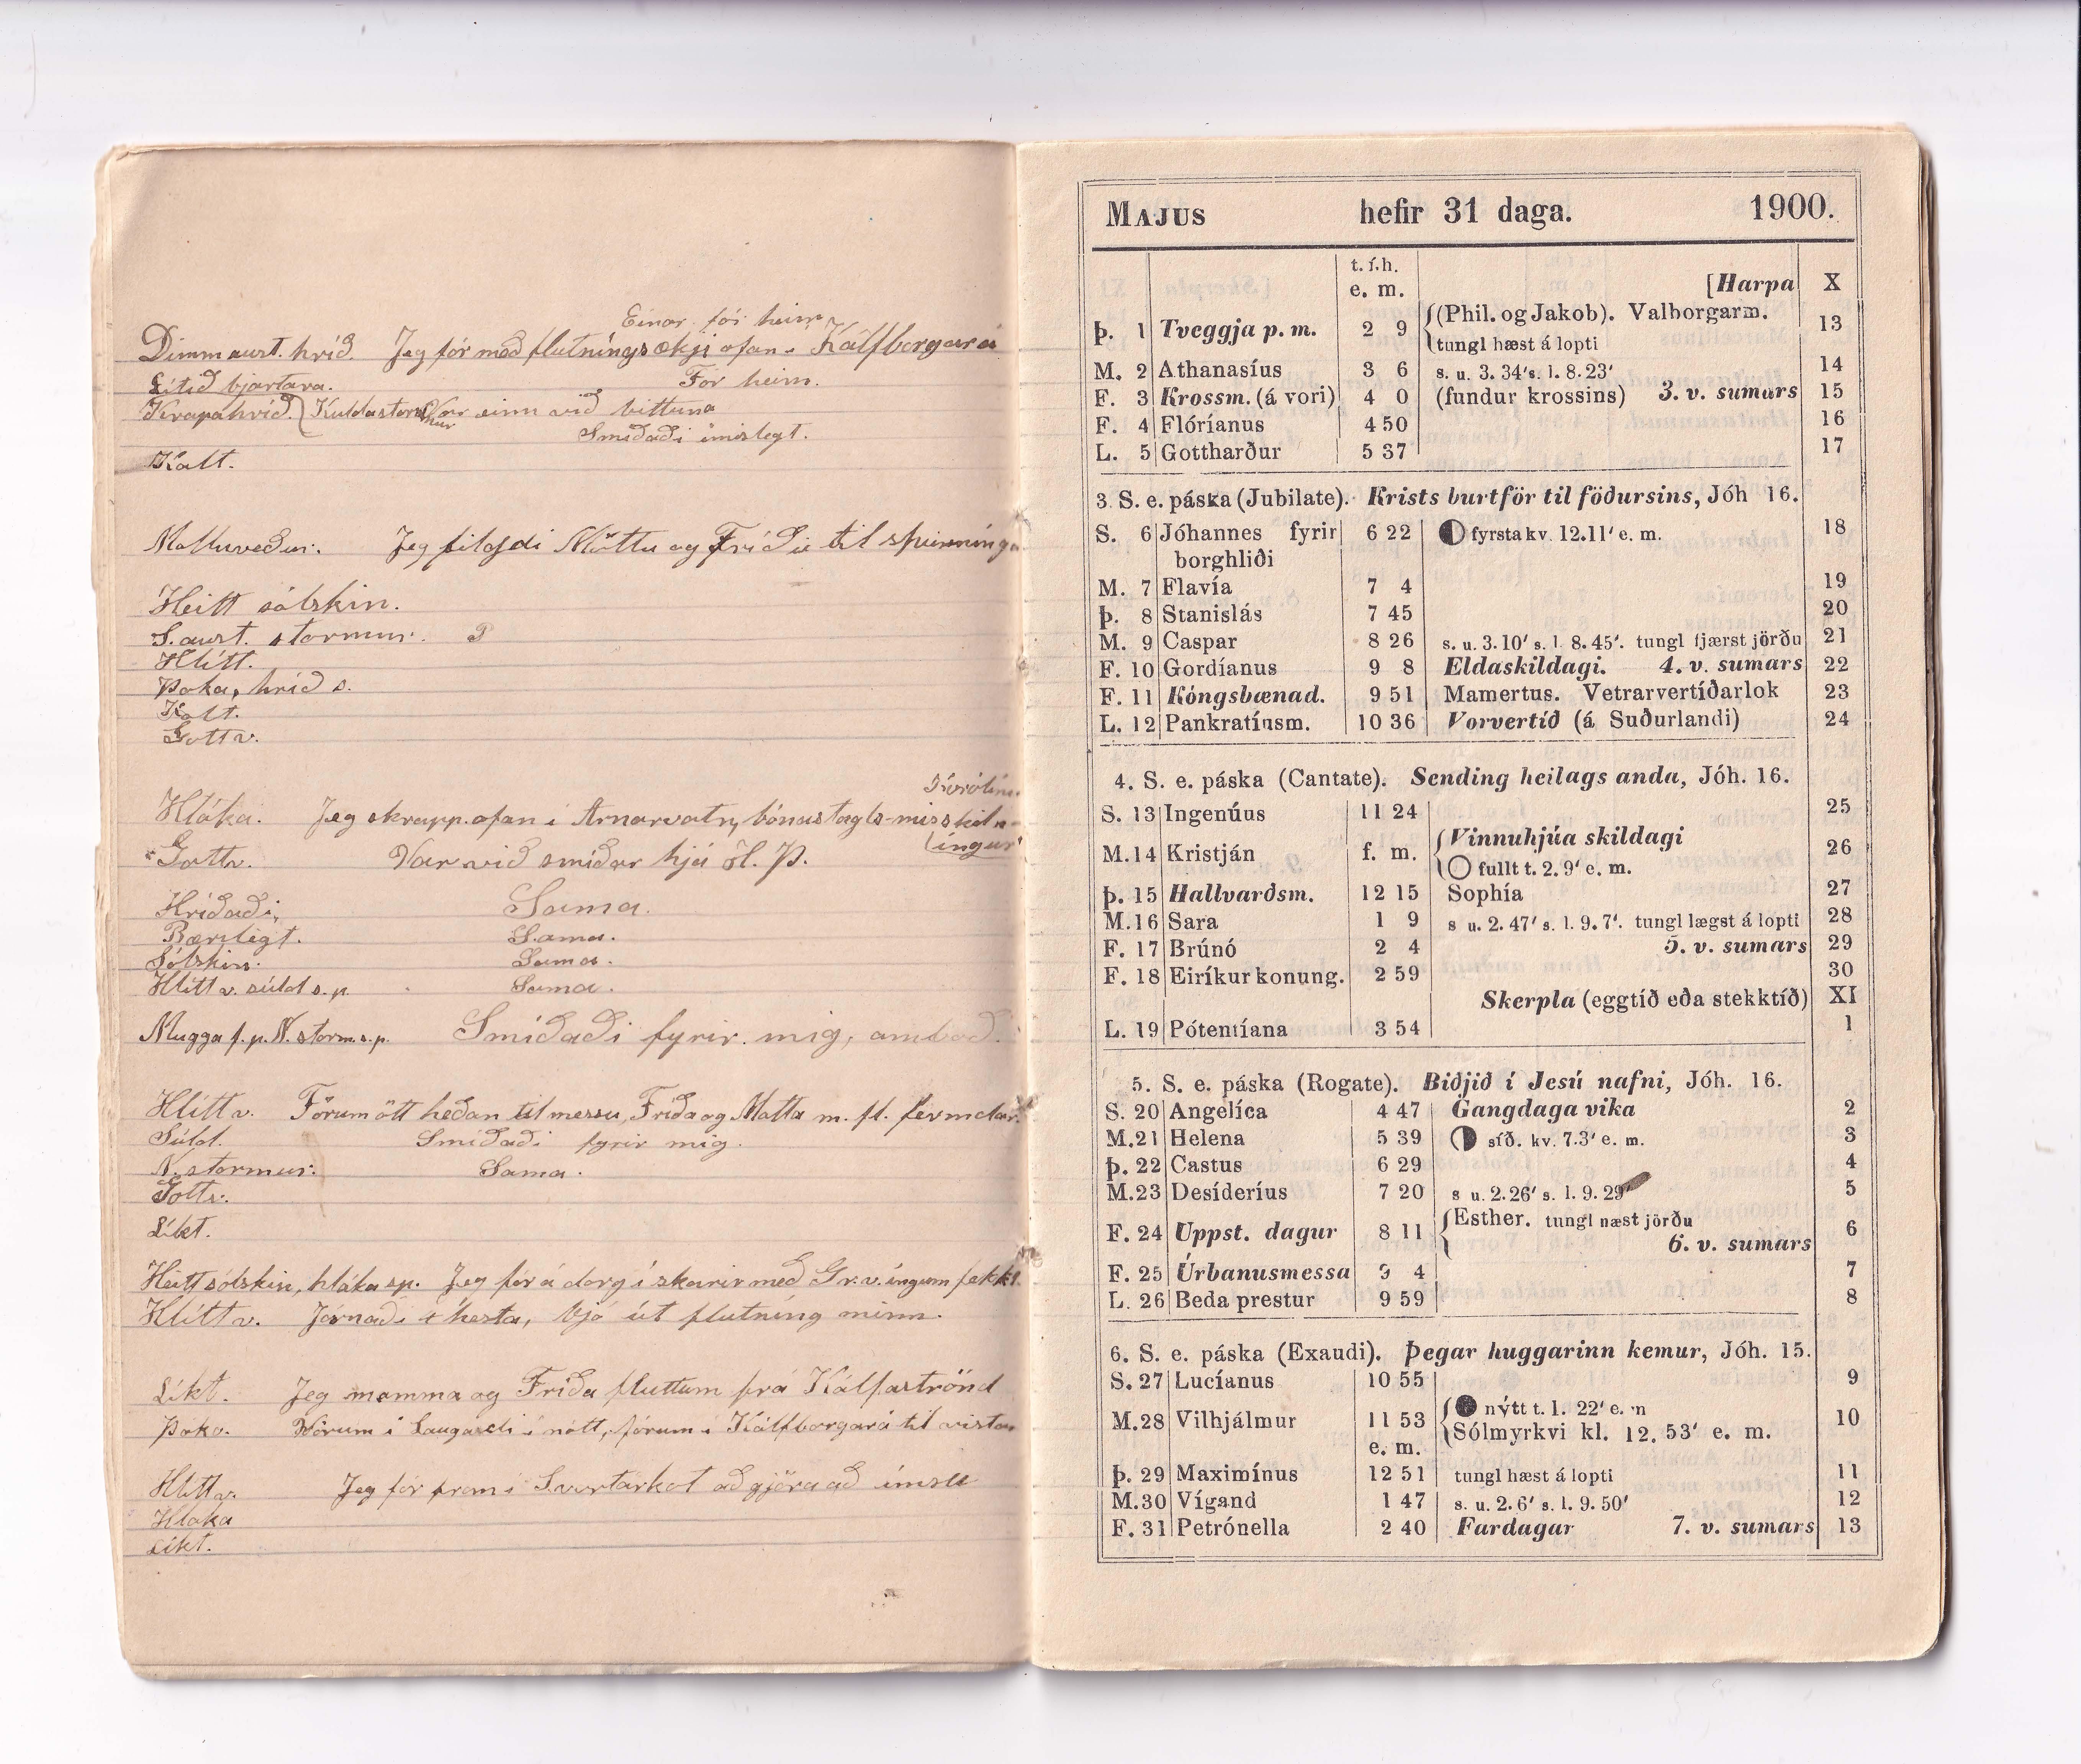 Einar fór heim
Dimm aust. hríð. Jeg fór með flutníngsækji ofan í Kálfborgará
Lítið bjartara. Fór heim.
Krapahríð. Kuldastormur Var einn við bittuna
Smíðaði ímislegt.
Kalt.
Molluveður. Jeg filgdi Möttu og Fríðu til spurnínga
Heitt sólskin.
S.aust. stormur.
Hlítt.
Þoka, hríð s.
Kalt.
Gott v.
Hláka. Jeg skrapp ofan í Arnarvatn, bónustagls-misskiln-
íngur
Gott v. Var við smíðar hjá H. Þ.
Hríðaði, Sama.
Bærilegt. Sama.
Sólskin. Sama.
Hlítt v. súld s.p. Sama.
Mugga f.p. N. storm s.p. Smíðaði fyrir mig, amboð.
Hlítt v. Fórum ött héðan til messu, Fríða og Matta m. fl. fermdar.
Súld. Smíðaði fyrir mig.
N. stormur. Sama.
Gott v.
Líkt.
Heitt sólskin, hláka sp. Jeg fór á dorg í skarir með Gr.v.íngum fekk 1.
Hlítt v. Járnaði 4 hesta, bjó út flutníng minn.
Líkt. Jeg mamma og Fríða fluttum frá Kálfaströnd
Þoka. Vórum í Laugaseli í nótt, fórum í Kálfborgará til vistar
Hlítt v. Jeg fór fram í Svartárkot að gjöra að ímsu
Hláka
Líkt.
MAJUS hefir 31 daga. 1900.
t. í. h.
e. m. [Harpa X
Þ. 1 Tveggja p. m. 2 9 (Phil. og Jakob). Valborgarm. 13
tungl hæst á lopti
M. 2 Athanasíus 3 6 s. u. 3. 34′ s. l. 8. 23′ 14
F. 3 Krossm. (á vori) 4 0 (fundur krossins) 3. v. sumars 15
F. 4 Flóríanus 4 50 16
L. 5 Gottharður 5 37 17
3 S. e. páska (Jubilate). Krists burtför til föðursins, Jóh 16.
S. 6 Jóhannes fyrir 6 22 fyrsta kv. 12.11′ e. m. 18
borghliði
M. 7 Flavía 7 4 19
Þ. 8 Stanislás 7 45 20
M. 9 Caspar 8 26 s. u. 3.10′ s. l. 8. 45′. tungl fjærst jörðu 21
F. 10 Gordíanus 9 8 Eldaskildagi. 4. v. sumars 22
F. 11 Kóngsbænad. 9 51 Mamertus. Vetrarvertíðarlok 23
L. 12 Pankratíusm. 10 36 Vorvertíð (á Suðurlandi) 24
4. S. e. páska (Cantate). Sending heilags anda, Jóh. 16.
S. 13 Ingenúus 11 24 25
Vinnuhjúa skildagi
M. 14 Kristján f. m. 26
fullt t. 2. 9′ e. m.
Þ. 15 Hallvarðsm. 12 15 Sophía 27
M. 16 Sara 1 9 s u. 2. 47′ s. l. 9. 7′. tungl lægst á lopti 28
F. 17 Brúnó 2 4 5. v. sumars 29
F. 18 Eiríkur konung. 2 59 30
Skerpla (eggtíð eða stekktíð) XI
L. 19 Pótentíana 3 54 1
5. S. e. páska (Rogate). Biðjið í Jesú nafni, Jóh. 16.
S. 20 Angelíca 4 47 Gangdaga vika 2
M. 21 Helena 5 39 síð. kv. 7.3′ e. m. 3
Þ. 22 Castus 6 29 4
M. 23 Desíderíus 7 20 s u. 2. 26′ s. l. 9. 29′ 5
Esther. tungl næst jörðu
F. 24 Uppst. dagur 8 11 6
6. v. sumars
F. 25 Úrbanusmessa 9 4 7
L. 26 Beda prestur 9 59 8
6. S. e. páska (Exaudi). Þegar huggarinn kemur, Jóh. 15.
S. 27 Lucíanus 10 55 9
nýtt t. 1. 22′ e. m
M. 28 Vilhjálmur 11 53 10
Sólmyrkvi kl. 12. 53′ e. m.
e. m.
Þ. 29 Maximínus 12 51 tungl hæst á lopti 11
M. 30 Vígand 1 47 s. u. 2. 6′ s. l. 9. 50′ 12
F. 31 Petrónella 2 40 Fardagar 7. v. sumars 13